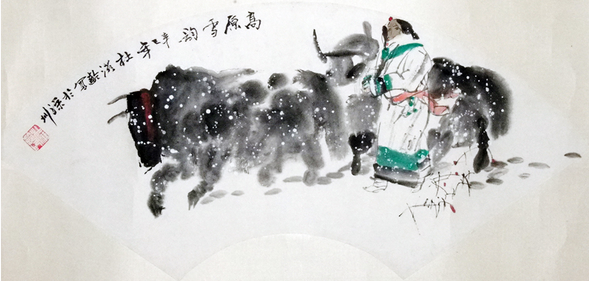 高原雪韵 辛巳年 杜滋龄写於深圳